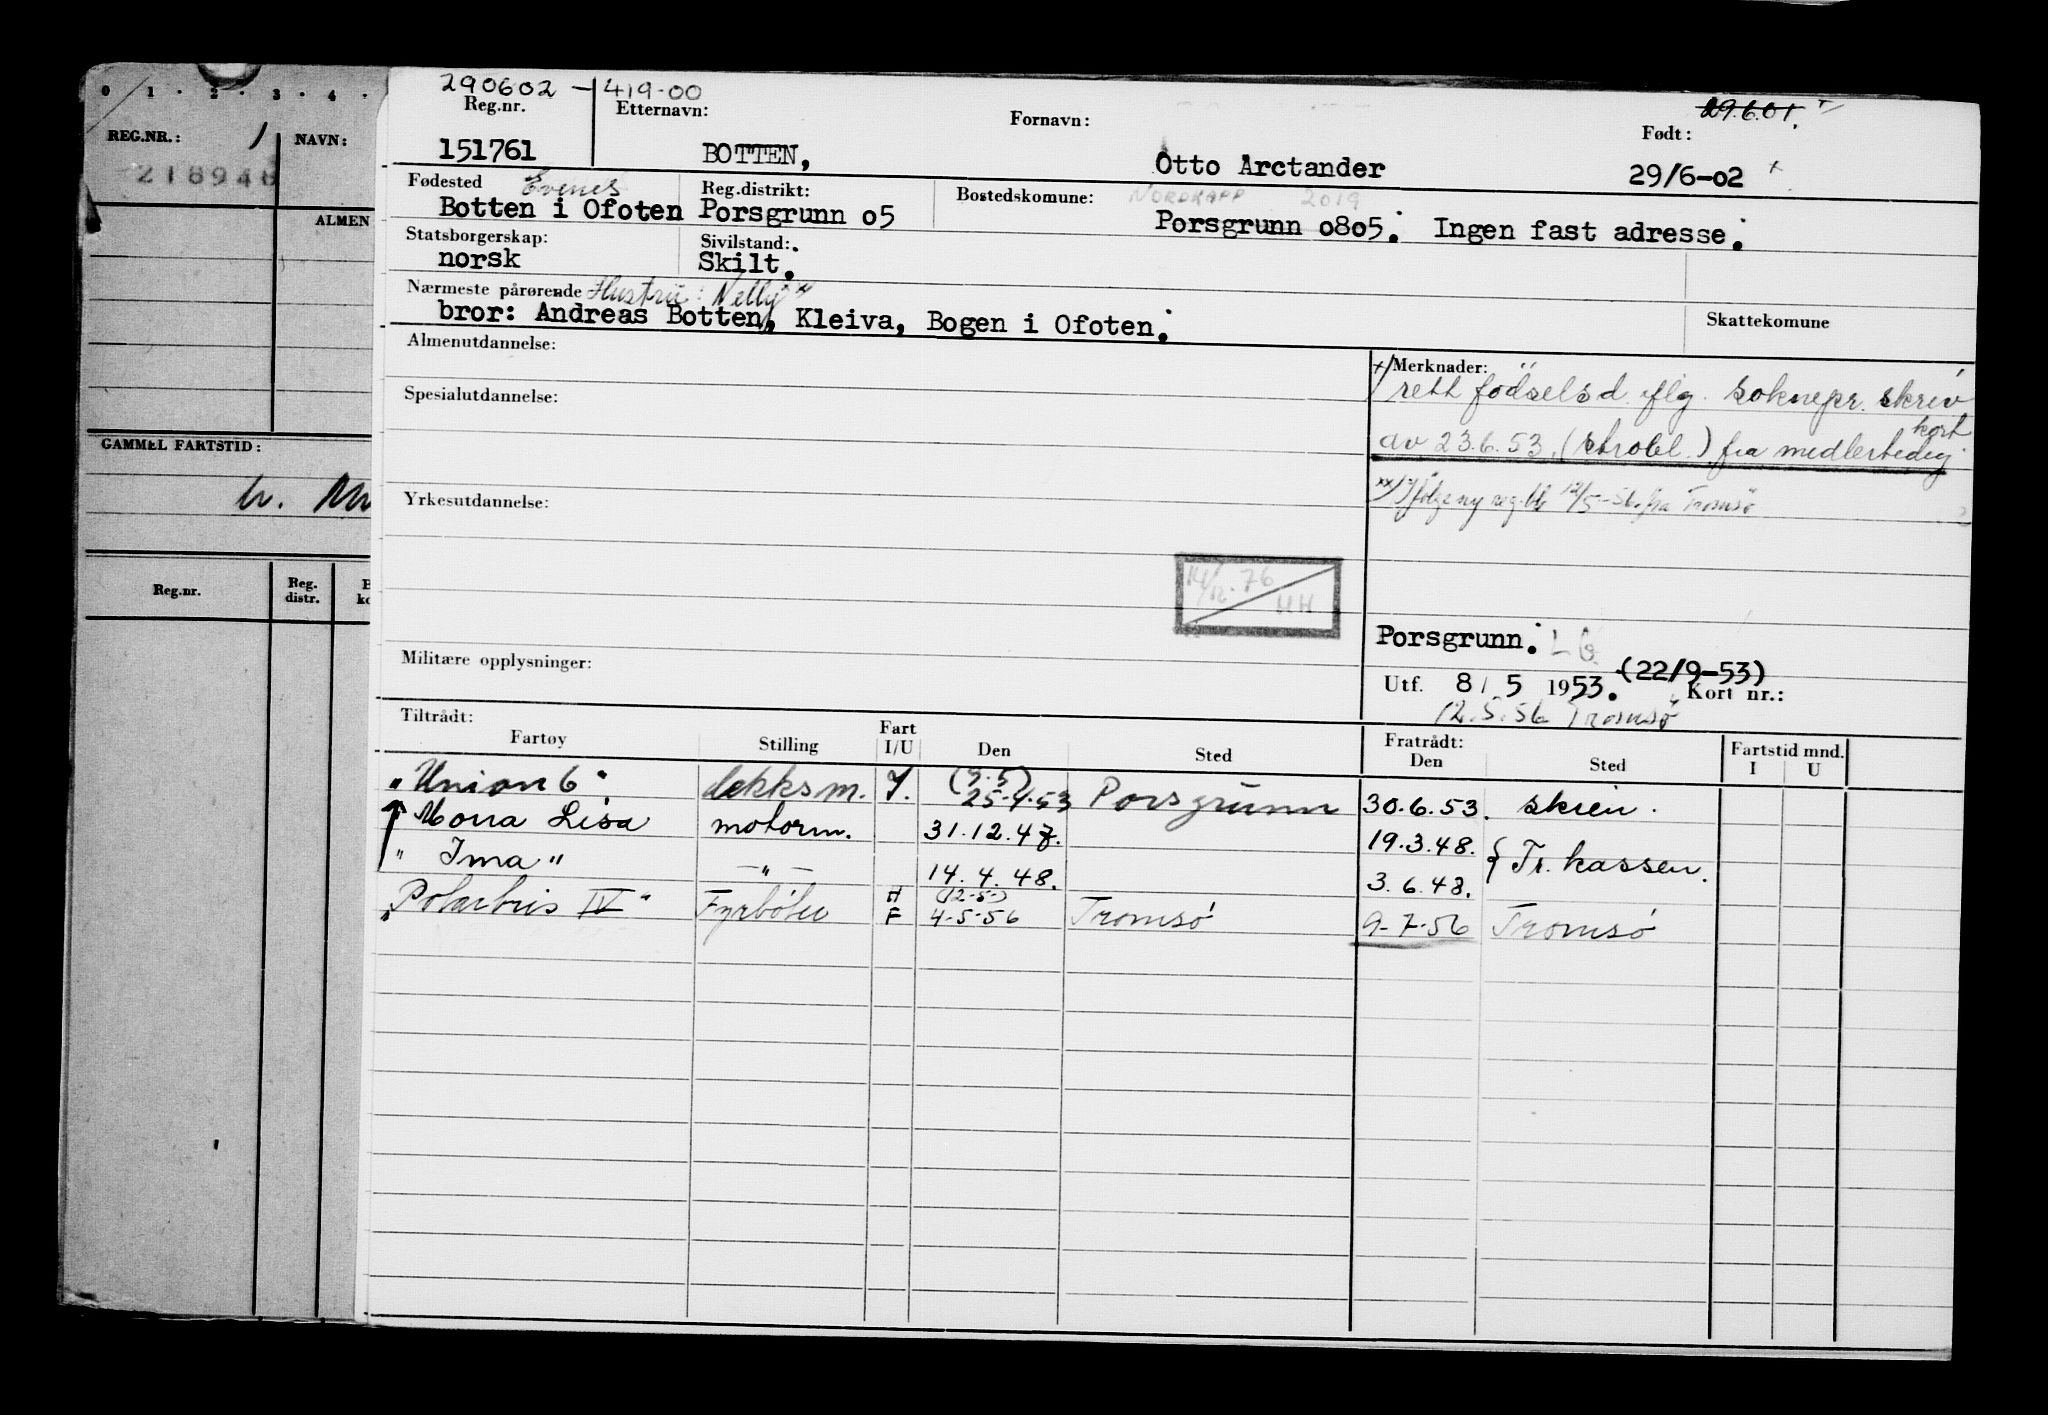 0 1 · 2 · 3 · 4 ·
REG.NR.: 1 NAVN:
218946
ALMEN
GAMMEL FARTSTID:
Reg.nr. Reg. distr.
290602 - 419-00
Reg.nr. Etternavn: Fornavn: Født: 29.6.01.
151761 BOTTEN, Otto Arctander 29/6-02 +
Fødested Evenes Reg.distrikt: Bostedskomune: NORDKAPP 2019
Botten i Ofoten Porsgrunn 05 Porsgrunn 0805. Ingen fast adresse.
Statsborgerskap: Sivilstand:
norsk Skilt.
Nærmeste pårørende Hustru: Nelly xx
bror: Andreas Botten, Kleiva, Bogen i Ofoten.
Skattekomune
Almenutdannelse:
Spesialutdannelse:
Yrkesutdannelse:
Militære opplysninger:
+/ Merknader:
rett fødselsd. iflg. soknepr. skriv
av 23.6.53. (strobl.) fra medlertedig kort
xx/ Ifølge ny reg.bl. 12/5-56 fra Tromsø
14/12-76 HH
Porsgrunn. LG
Utf. 8/5 1953. (22/9-53) Kort nr.:
12.5.56 Tromsø
Tiltrådt: Fart Fratrådt: Fartstid mnd.
Fartøy Stilling I/U Den Sted Den Sted I U
"Union 6" dekksm. I. (9.5) 25.4.53 Porsgrunn 30.6.53. Skien.
Mona Lisa motorm. 31.12.47. 19.3.48. } Tr. kassen.
" Ima " — " — 14.4.48. 3.6.48.
"Polarbris IV" Fyrbøter H F (12-5-) 4-5-56 Tromsø 9-7-56 Tromsø